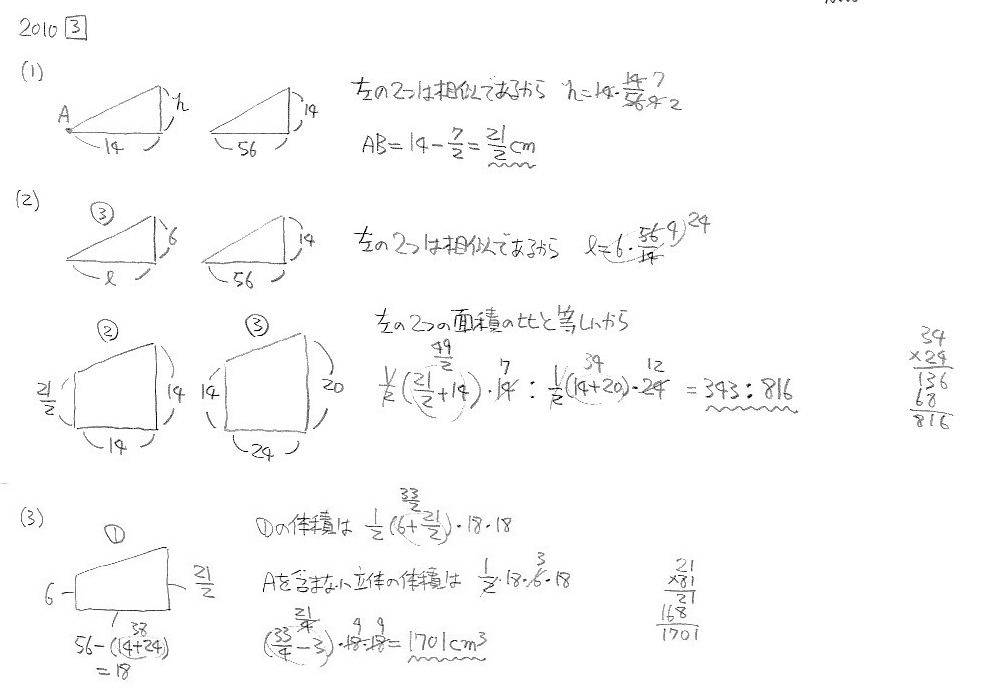 2010 3
(1)
A h 14 14 56
左の2つは相似であるから h=14・14/56 7 4 2
AB=14-7/2=21/2cm
(2)
③ 6 l 14 56
左の2つは相似であるから l=6・56/14 4 24
② ③
21/2 14 14 14 20 24
左の2つの面積の比と等しいから
49/2 7 34 12
1/2(21/2+14)・14:1/2(14+20)・24=343:816
34
×24
136
68
816
(3)
① 6 21/2
38
56-(14+24)
=18
33/2
①の体積は 1/2(6+21/2)・18・18
3
Aを含まない立体の体積は 1/2・18・6・18
21/4 9 9
(33/4-3)・18・18=1701cm³
21
×81
21
168
1701